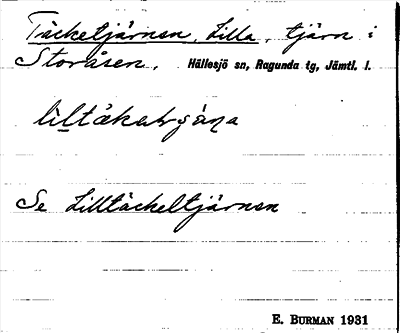 Täcketjärnen, Lilla, tjärn i
Storåsen. Hällesjö sn, Ragunda tg, Jämtl. l.
Se Lilltäckeltjärnen
E. BURMAN 1931